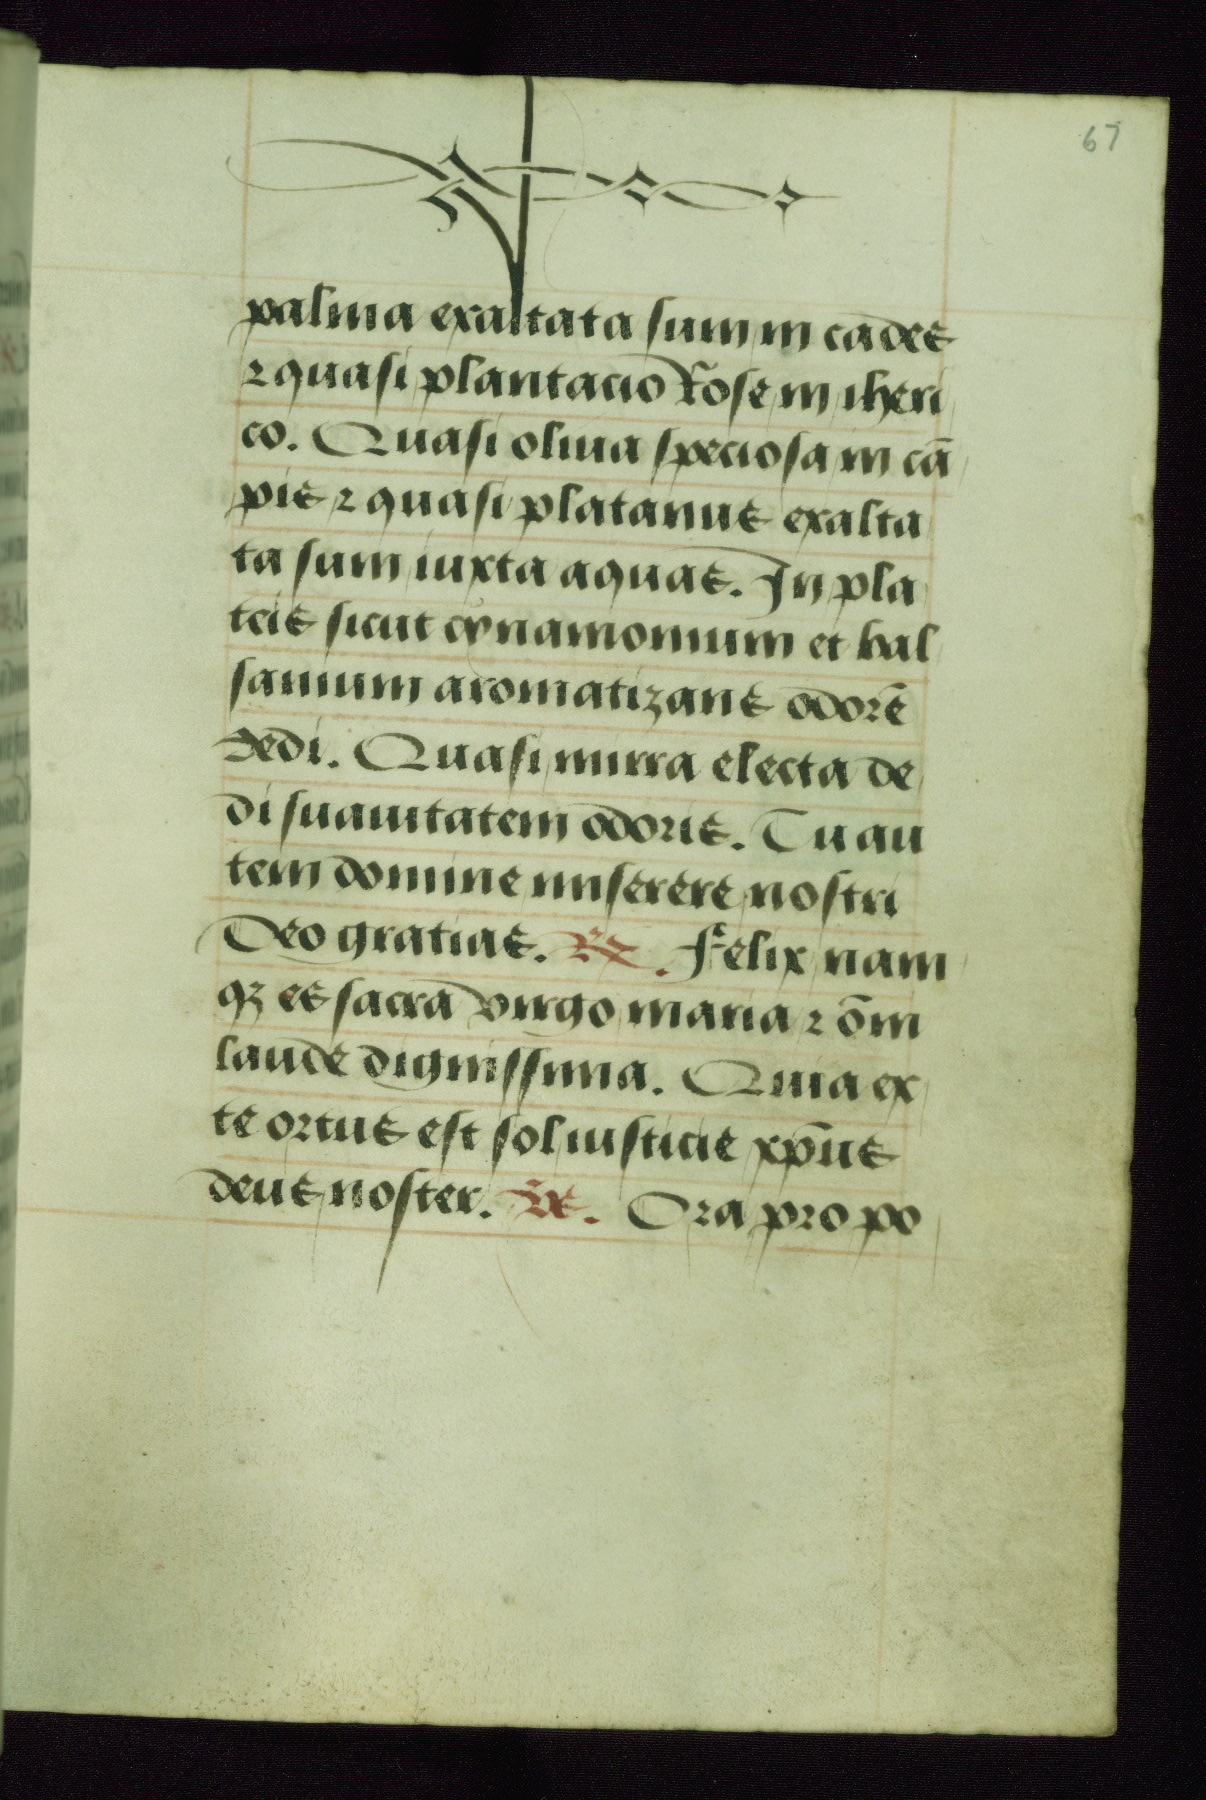 67
palma exaltata sum in cades
⁊ quasi plantacio Rose in iheri
co. Quasi oliua speciosa in cā
pis ⁊ quasi platanus exalta
ta sum iuxta aquas. In pla
teis sicut cynamomum et bal
samum aromatizans odorē
dedi. Quasi mirra electa de
di suauitatem odoris. Tu au
tem domine miserere nostri
Deo gratias. R̃. Felix nam
qꝫ es sacra virgo maria ⁊ om̄i
laude dignissima. Quia ex
te ortus est sol iusticie xp̄us
deus noster. V̄s. Ora pro po